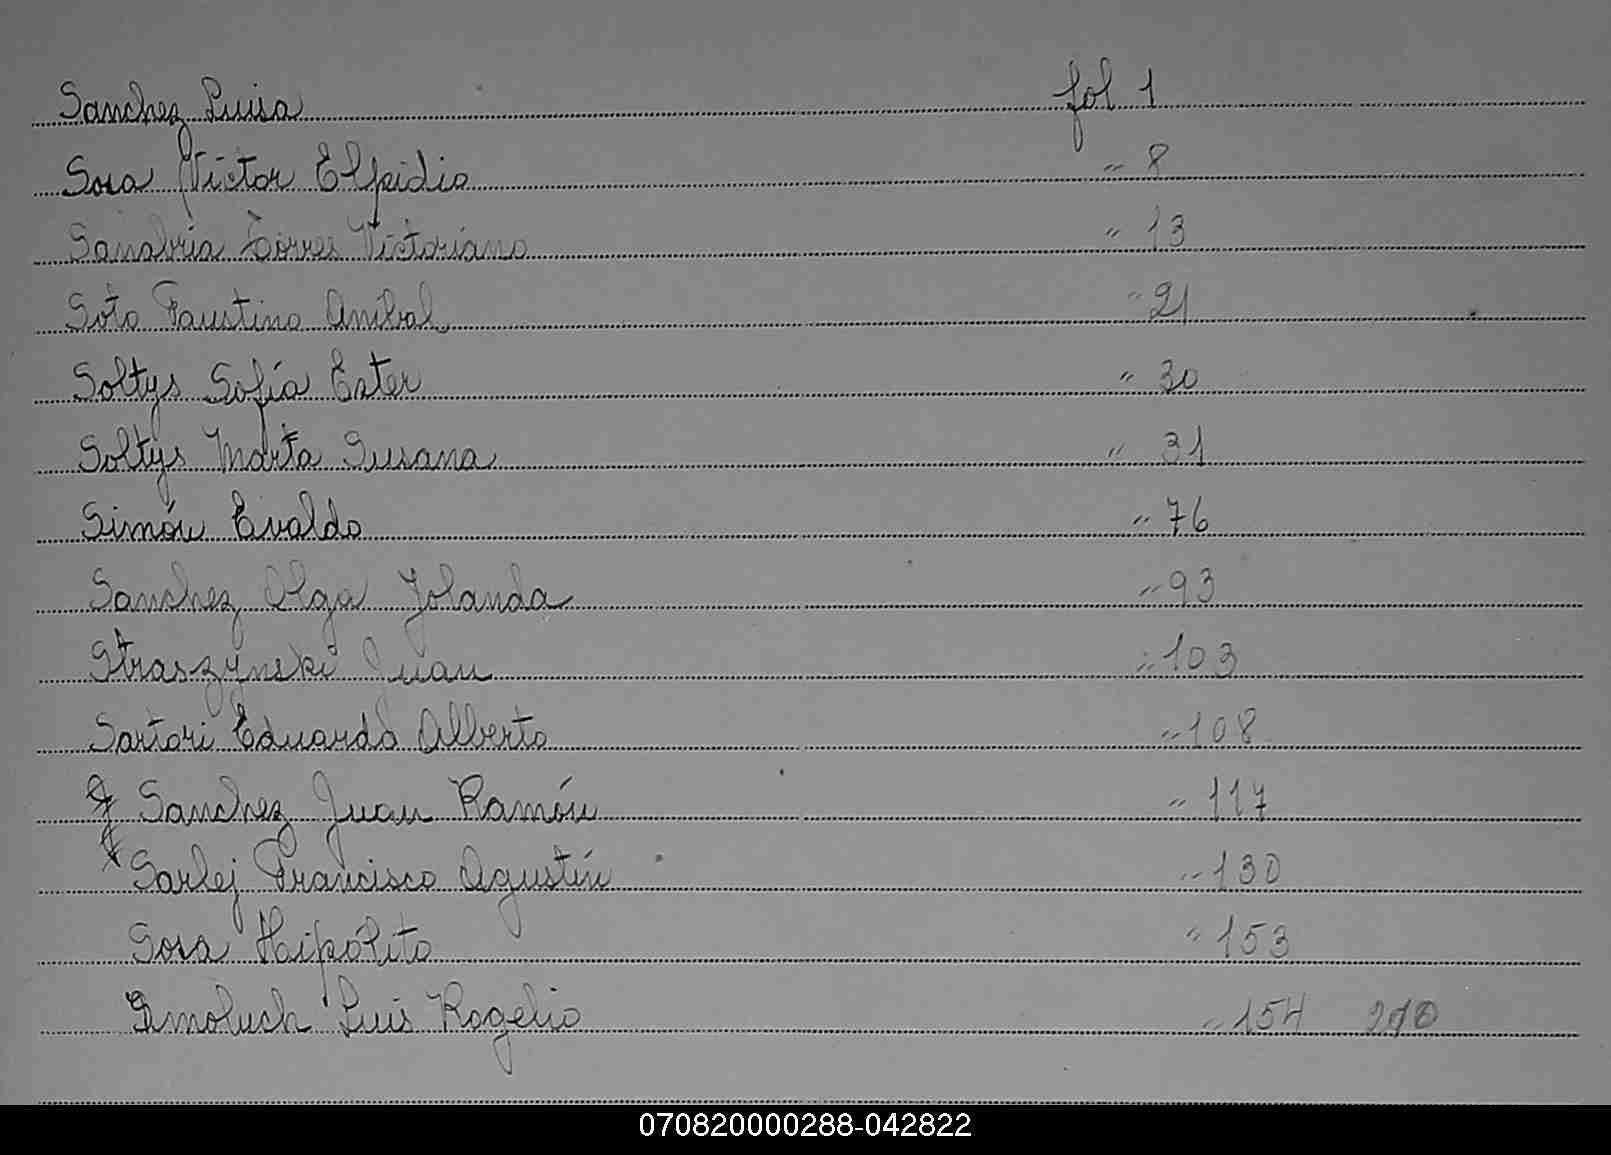 Sanchez Luisa fol 1
Sosa Victor Elpidio " 8
Sanabria Torres Victoriano " 13
Soto Faustino Anibal " 21
Soltys Sofía Ester " 30
Soltys Marta Susana " 31
Simón Evaldo " 76
Sanchez Olga Yolanda " 93
Straszynski Juan " 103
Sartori Eduardo Alberto " 108
Sanchez Juan Ramón " 117
Sarlej Francisco Agustín " 130
Sosa Hipólito " 153
Smoluch Luis Rogelio " 154
070820000288-042822